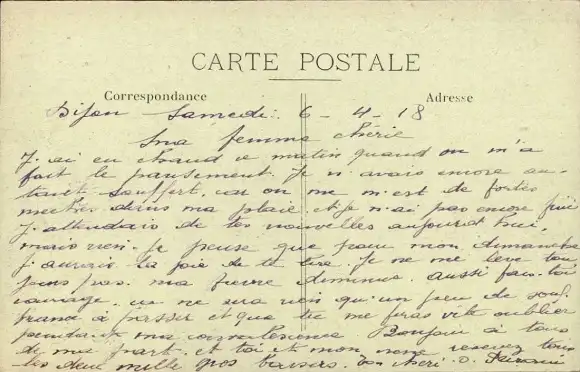 CARTE POSTALE
Correspondance
Adresse
Dijon Samedi 6 - 4 - 18
Ma femme chérie
J'ai eu chaud ce matin quand on m'a
fait le pansement. Je n'avais encore au-
tant souffert, car on me m'est de fortes
mèches dans ma plaie. et je n'ai pas encore fini
J'attendais de tes nouvelles aujourd'hui,
mais rien. Je pense que pour mon dimanche
J'aurais la joie de te lire. Je ne me lève tou
jours pas. ma fièvre diminue. aussi fais-toi
courage, ce ne sera rien qu'un peu de souf
france à passer et que tu me feras vite oublier
pendant ma convalescence Bonjour à tous
de ma part. et toi et mon recevez tous
les deux mille gros baisers. Ton chéri